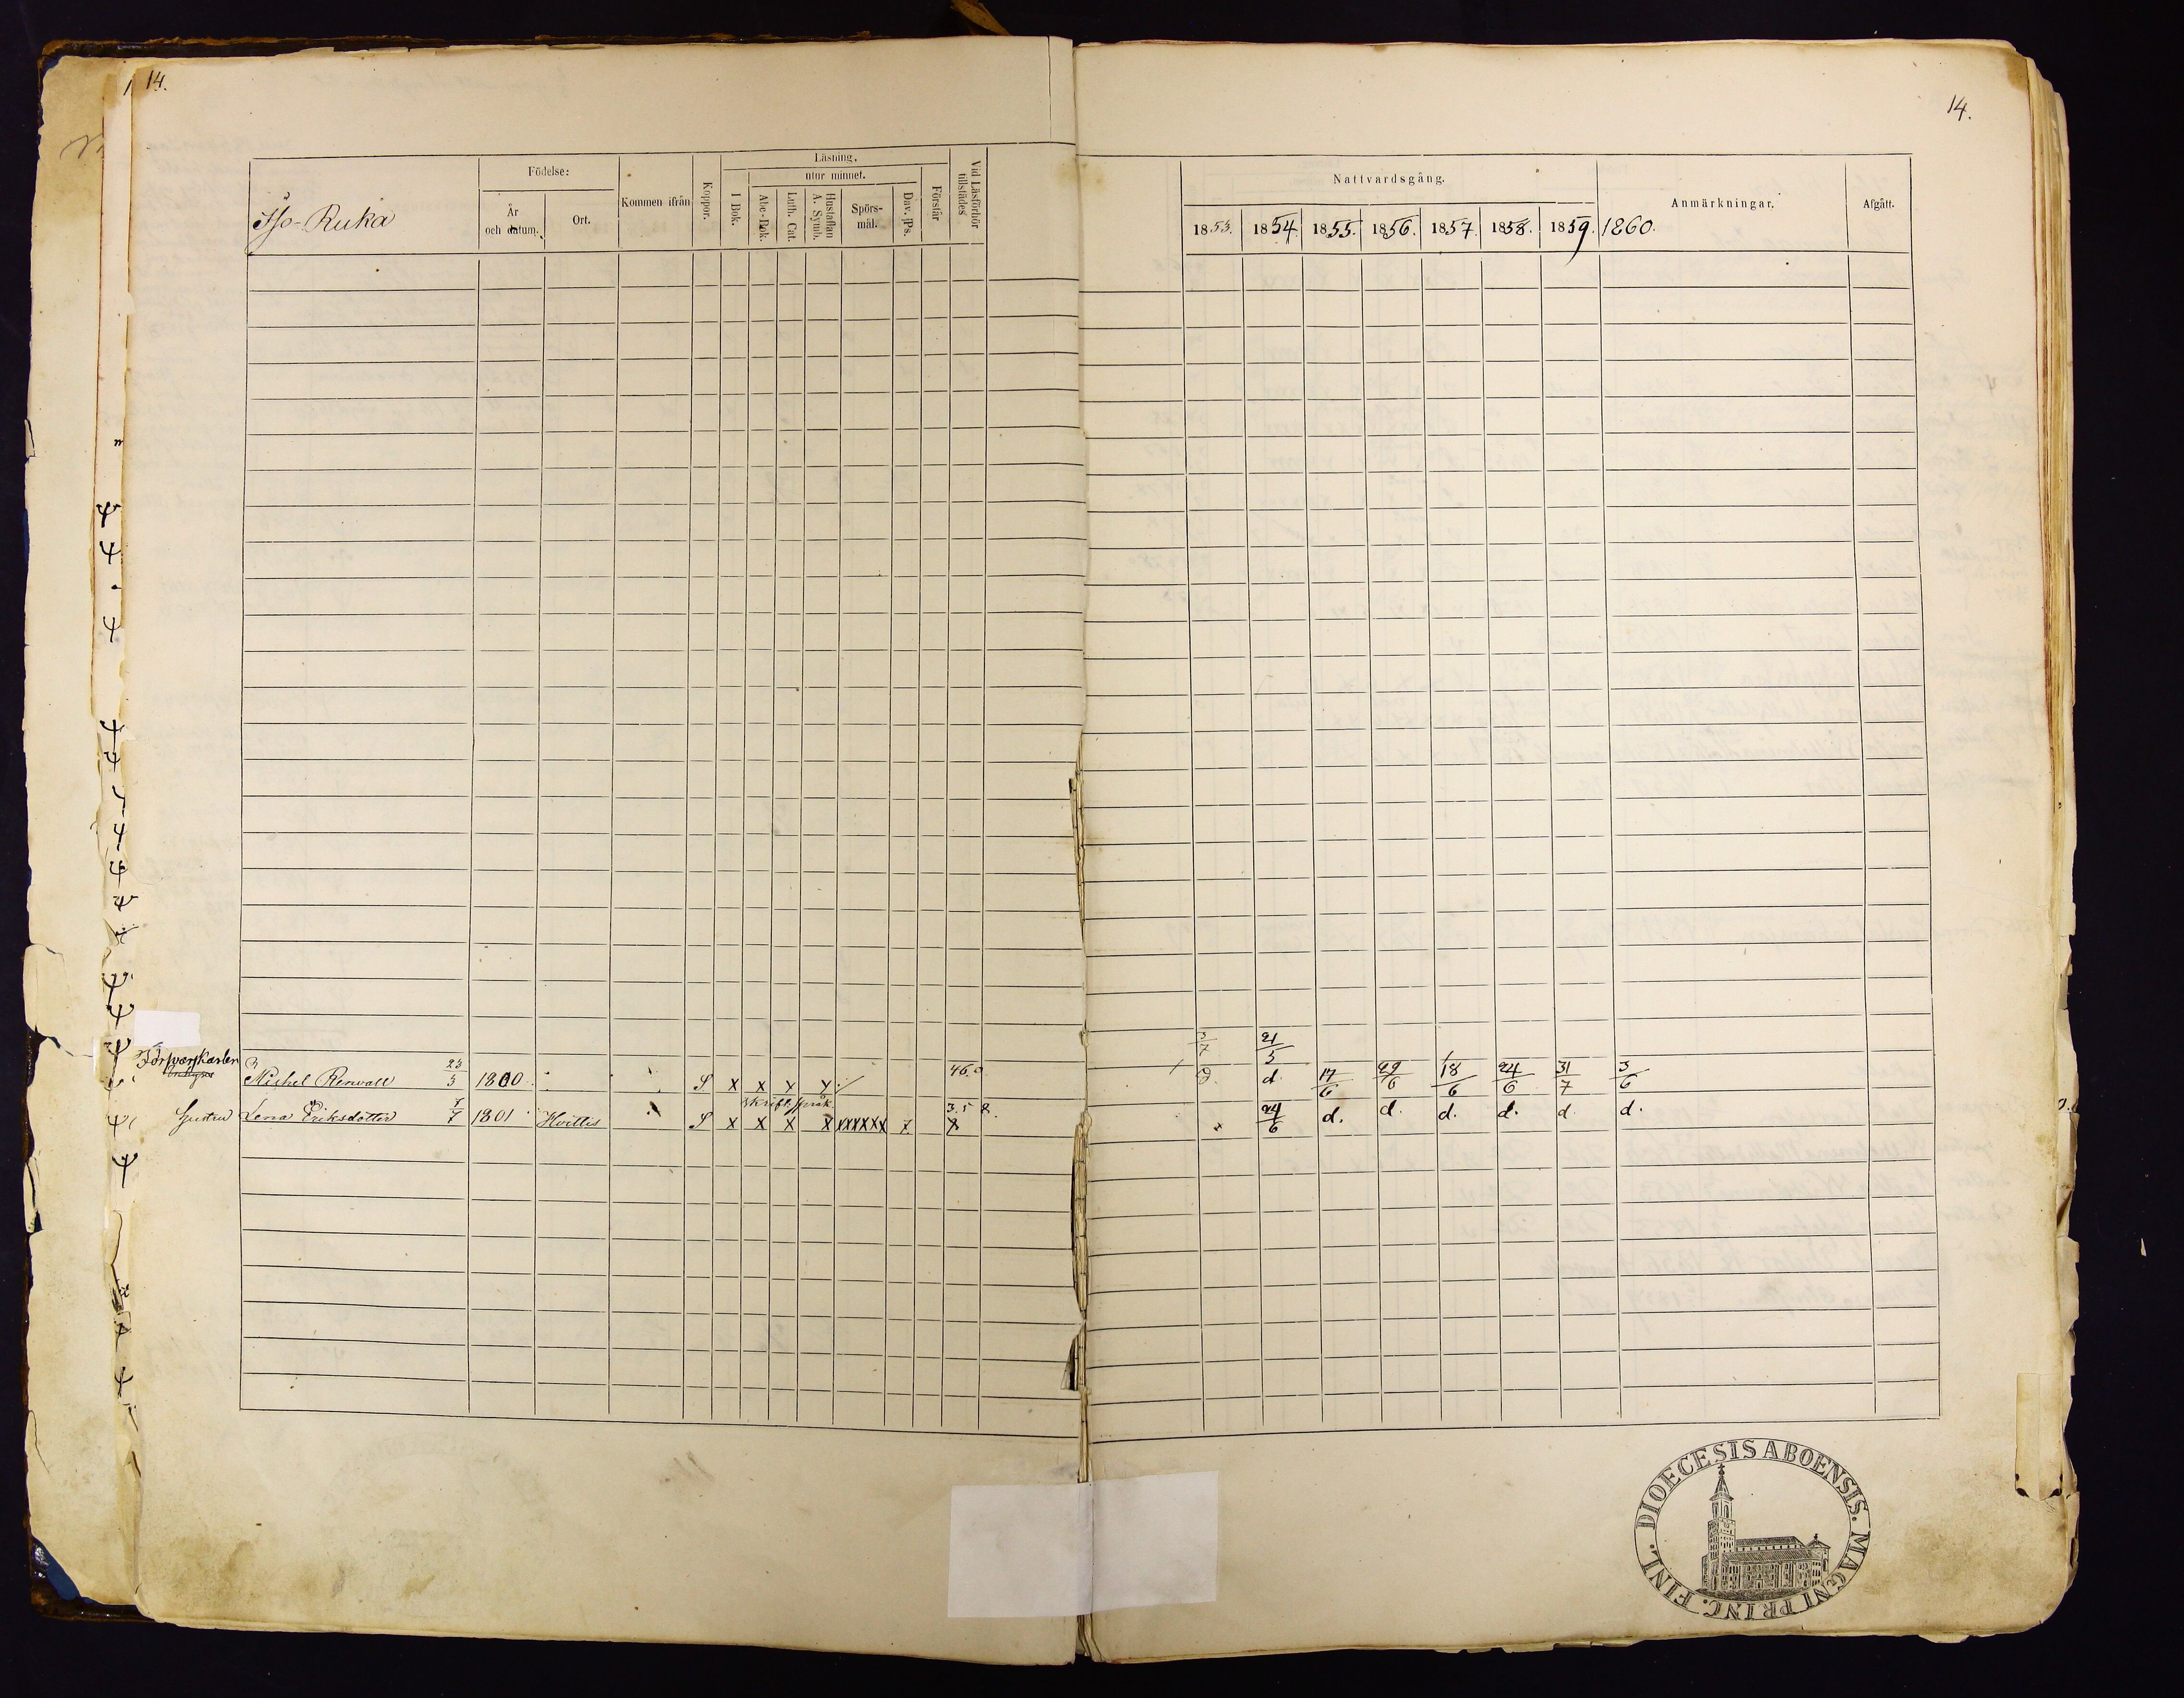 14.
14.
Iso-Ruka
Födelse:
År
och datum.
Ort.
Kommen ifrån
Koppor.
Läsning.
utur minnet.
I Bok.
Abc-Bok.
Luth. Cat.
Hustaflan
A. Symb.
Spörs-
mål.
Dav. Ps.
Förstår
Vid Läsförhör
tillstädes
Nattvardsgång.
1853. 1854. 1855. 1856. 1857. 1858. 1859. 1860.
Anmärkningar.
Afgått.
3/7 21/5
Michel Renvall 23/3 1800 S x x y y 46. d. 17/6 29/6 18/6 24/6 31/7 3/6
skrift språk 3.5 8.
Hustru Lena Eriksdotter 7/7 1801 Hvittis S x x x x xxxxxx x x 24/6 d. d. d. d. d. d.
DIOECESIS ABOENSIS. MAGNI PRINC. FINL.